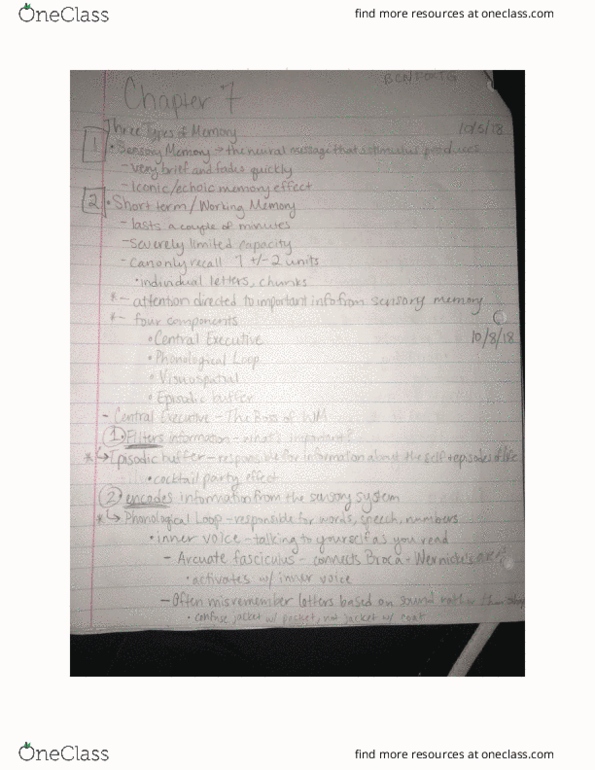 OneClass
find more resources at oneclass.com
Chapter 7
Three Types of Memory
10/5/18
1 • Sensory Memory → the neural message that stimulus produces
- very brief and fades quickly
- Iconic/echoic memory effect
2 • Short term/Working Memory
- lasts a couple of minutes
- severely limited capacity
- can only recall 7 +/- 2 units
• individual letters, chunks
* - attention directed to important info from sensory memory
* - four components
• Central Executive
10/8/18
• Phonological Loop
• Visuospatial
• Episodic buffer
- Central Executive - The Boss of WM
1 Filters information - what's important?
* ↳ Episodic buffer - responsible for information about the self + episodes of life
• cocktail party effect
2 encodes information from the sensory system
* ↳ Phonological Loop - responsible for words, speech, numbers
• inner voice - talking to yourself as you read
- Arcuate fasciculus - connects Broca + Wernicke's
• activates w/ inner voice
- Often misremember letters based on sound rather than
• confuse jacket w/ packet, not jacket w/ coat
OneClass
find more resources at oneclass.com